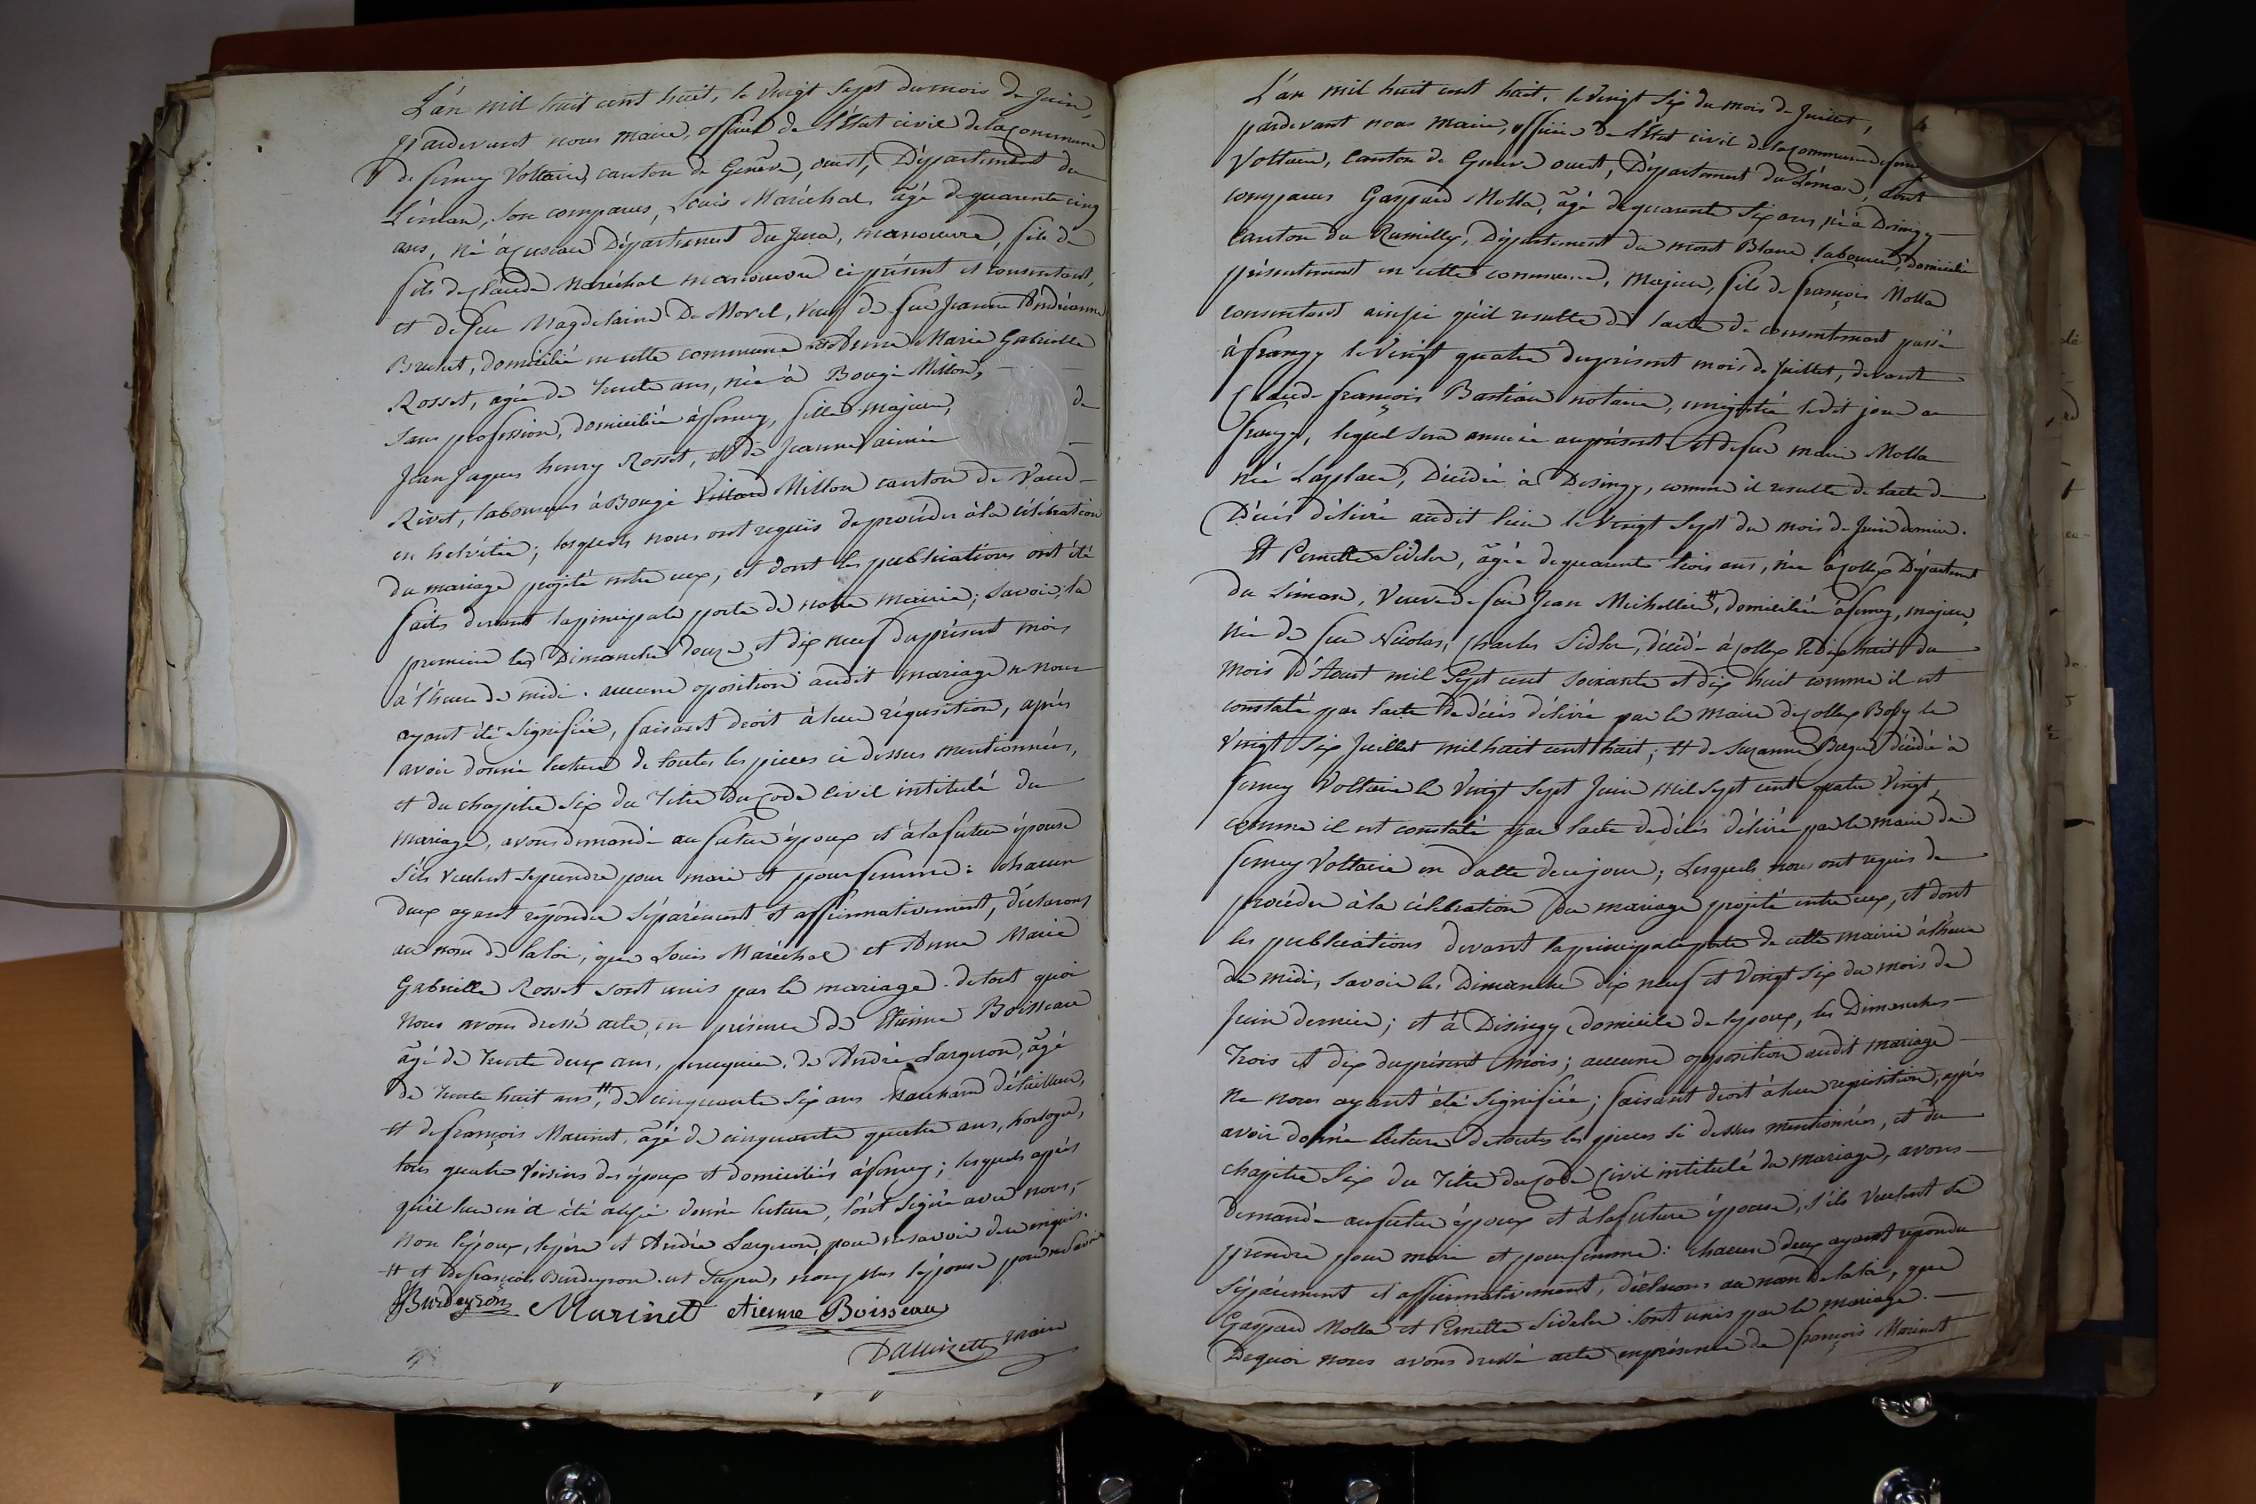 L'an mil huit cent huit, le vingt sept du mois de Juin,
pardevant nous maire, officier de l'état civil de la Commune
de ferney Voltaire, canton de Genève, ouest, Département du
Léman, son comparus, Louis Maréchal, âgé de quarante cinq
ans, né à Département du Jura, manoeuvre, fils de
fils de Claude Maréchal manoeuvre ci présent et consentant,
et de feu Magdelaine De Morel, veuf de feu Jeanne Andréanne
Bruchet, domicilié en cette commune et Anne Marie Gabrielle
Rosset, agée de trente ans, née à Bougi Millon,
sans profession, domiciliée à ferney, fille majeure, de
Jean Jaques henry Rosset, et de Jeanne aimée
Rivet, laboureurs à Bougi Villard Millon canton de Vaud
en helvétie; lesquels nous ont requis de procéder à la célébration
du mariage projeté entre eux, et dont les publications ont été
faites devant la principale porte de notre mairie; savoir, la
premiere les Dimanche douze et dix neuf du présent mois
à l'heure de midi. aucune oposition audit mariage ne nous
ayant été signifiée, faisant droit à leur réquisition, après
avoir donné lecture de toutes les pieces ci dessus mentionnées,
et du chapitre six du Titre du Code Civil intitulé du
mariage, avons demandé au futur époux et à la future épouse
s'ils veulent se prendre pour mari et pour femme: chacun
deux ayant répondu séparément et affirmativement, déclarons
au nom de la loi, que Louis Maréchal et Anne Marie
Gabrielle Rosset sont unis par le mariage. de tout quoi
nous avons dressé acte, en présence de Etienne Boisseau
âgé de trente deux ans, perruquier, de André Largueron, âgé
de trente huit ans, # de cinquante six ans Marchand détailleur,
et de françois Marinet, âgé de cinquante quatre ans, horloger,
tous quatre voisins des époux et domiciliés à ferney; lesquels après
qu'il leur en a été aussi donné lecture, l'ont signé avec nous,
non l'époux, le père et André Largueron, pour ne savoir de ce enquis.
# et de françois Burdeyron. et nonplus l'épouse pour ne savoir
Burdeyron Marinet etienne Boisseau
Dallinzette maire
L'an mil huit cent huit, le vingt six du mois de Juillet,
pardevant nous maire, officier de l'état civil de la commune de ferney
Voltaire, Canton de Genève ouest, Département du Léman, sont
comparus Gaspard Molla, âgé de quarante six ans, né à Desingy
Canton de Rumilly, Département du mont Blanc laboureur, domicilié
présentement en cette commune, majeur, fils de françois Molla
consentant ainsi qu'il resulte de l'acte de consentement passé
à frangy le vingt quatre du présent mois de Juillet, devant
Claude françois Bastian notaire, enregistré ledit jour au
frangy, lequel sera annexé au présent, et de feu marie Molla
née Laplace, Décédée à Desingy, comme il resulte de l'acte de
Décès délivré audit lieu le vingt sept du mois de Juin dernier.
Et Pernette Sideler, âgée de quarante trois ans, née à Collex Département
du Léman, Veuve de feu Jean Michollier #, domiciliée à ferney, majeure,
née de feu Nicolas, Charles Sideler, décédé à Collex le dix huit du
mois d'Aoust mil sept cent soixante et dix huit comme il est
constaté par l'acte de décès délivré par le maire de Collex Bossy le
vingt six Juillet mil huit cent huit; et de Suzanne décédée à
ferney Voltaire le vingt sept Juin mil sept cent quatre vingt,
comme il est constaté par l'acte de décès délivré par le maire de
ferney Voltaire en datte de ce jour; Lesquels nous ont requis de
procéder à la célébration du mariage projeté entre eux, et dont
les publications devant la principale porte de cette mairie à l'heure
de midi, savoir les Dimanche dix neuf et vingt six du mois de
Juin dernier; et à Désingy domicile de l'époux, les Dimanches
trois et dix du présent mois; aucune opposition audit mariage
ne nous ayant été signifiée; faisant droit à leur requisition, après
avoir donné lecture de toutes les pieces si dessus mentionnées, et du
chapitre six du Titre du Code Civil intitulé du mariage, avons
demandé au futur époux et à la future épouse, s'ils veulent se
prendre pour mari et pour femme: chacun deux ayant répondu
séparément et affirmativement, déclarons au nom de la loi, que
Gaspard Molla et Pernette Sideler sont unis par le mariage.
De quoi nous avons dressé acte en présence de françois Marinet